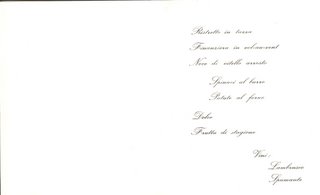 Ristretto in tazza
Finanziera in vol-au-vent
Noce di vitello arrosto
Spinaci al burro
Patate al forno
Dolce
Frutta di stagione
Vini:
Lambrusco
Spumante